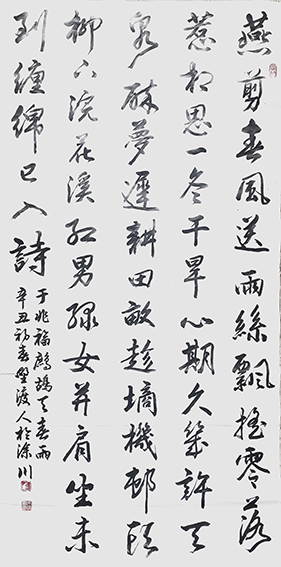 燕剪春風送雨絲飄搖零落
惹相思一冬干旱心期久幾許天
泉酥夢遲耕田畝趁墒機邨頭
柳下浣花溪紅男綠女并肩坐未
到纏綿已入詩
于兆福鷓鴣天春雨
辛丑初春野渡人於川